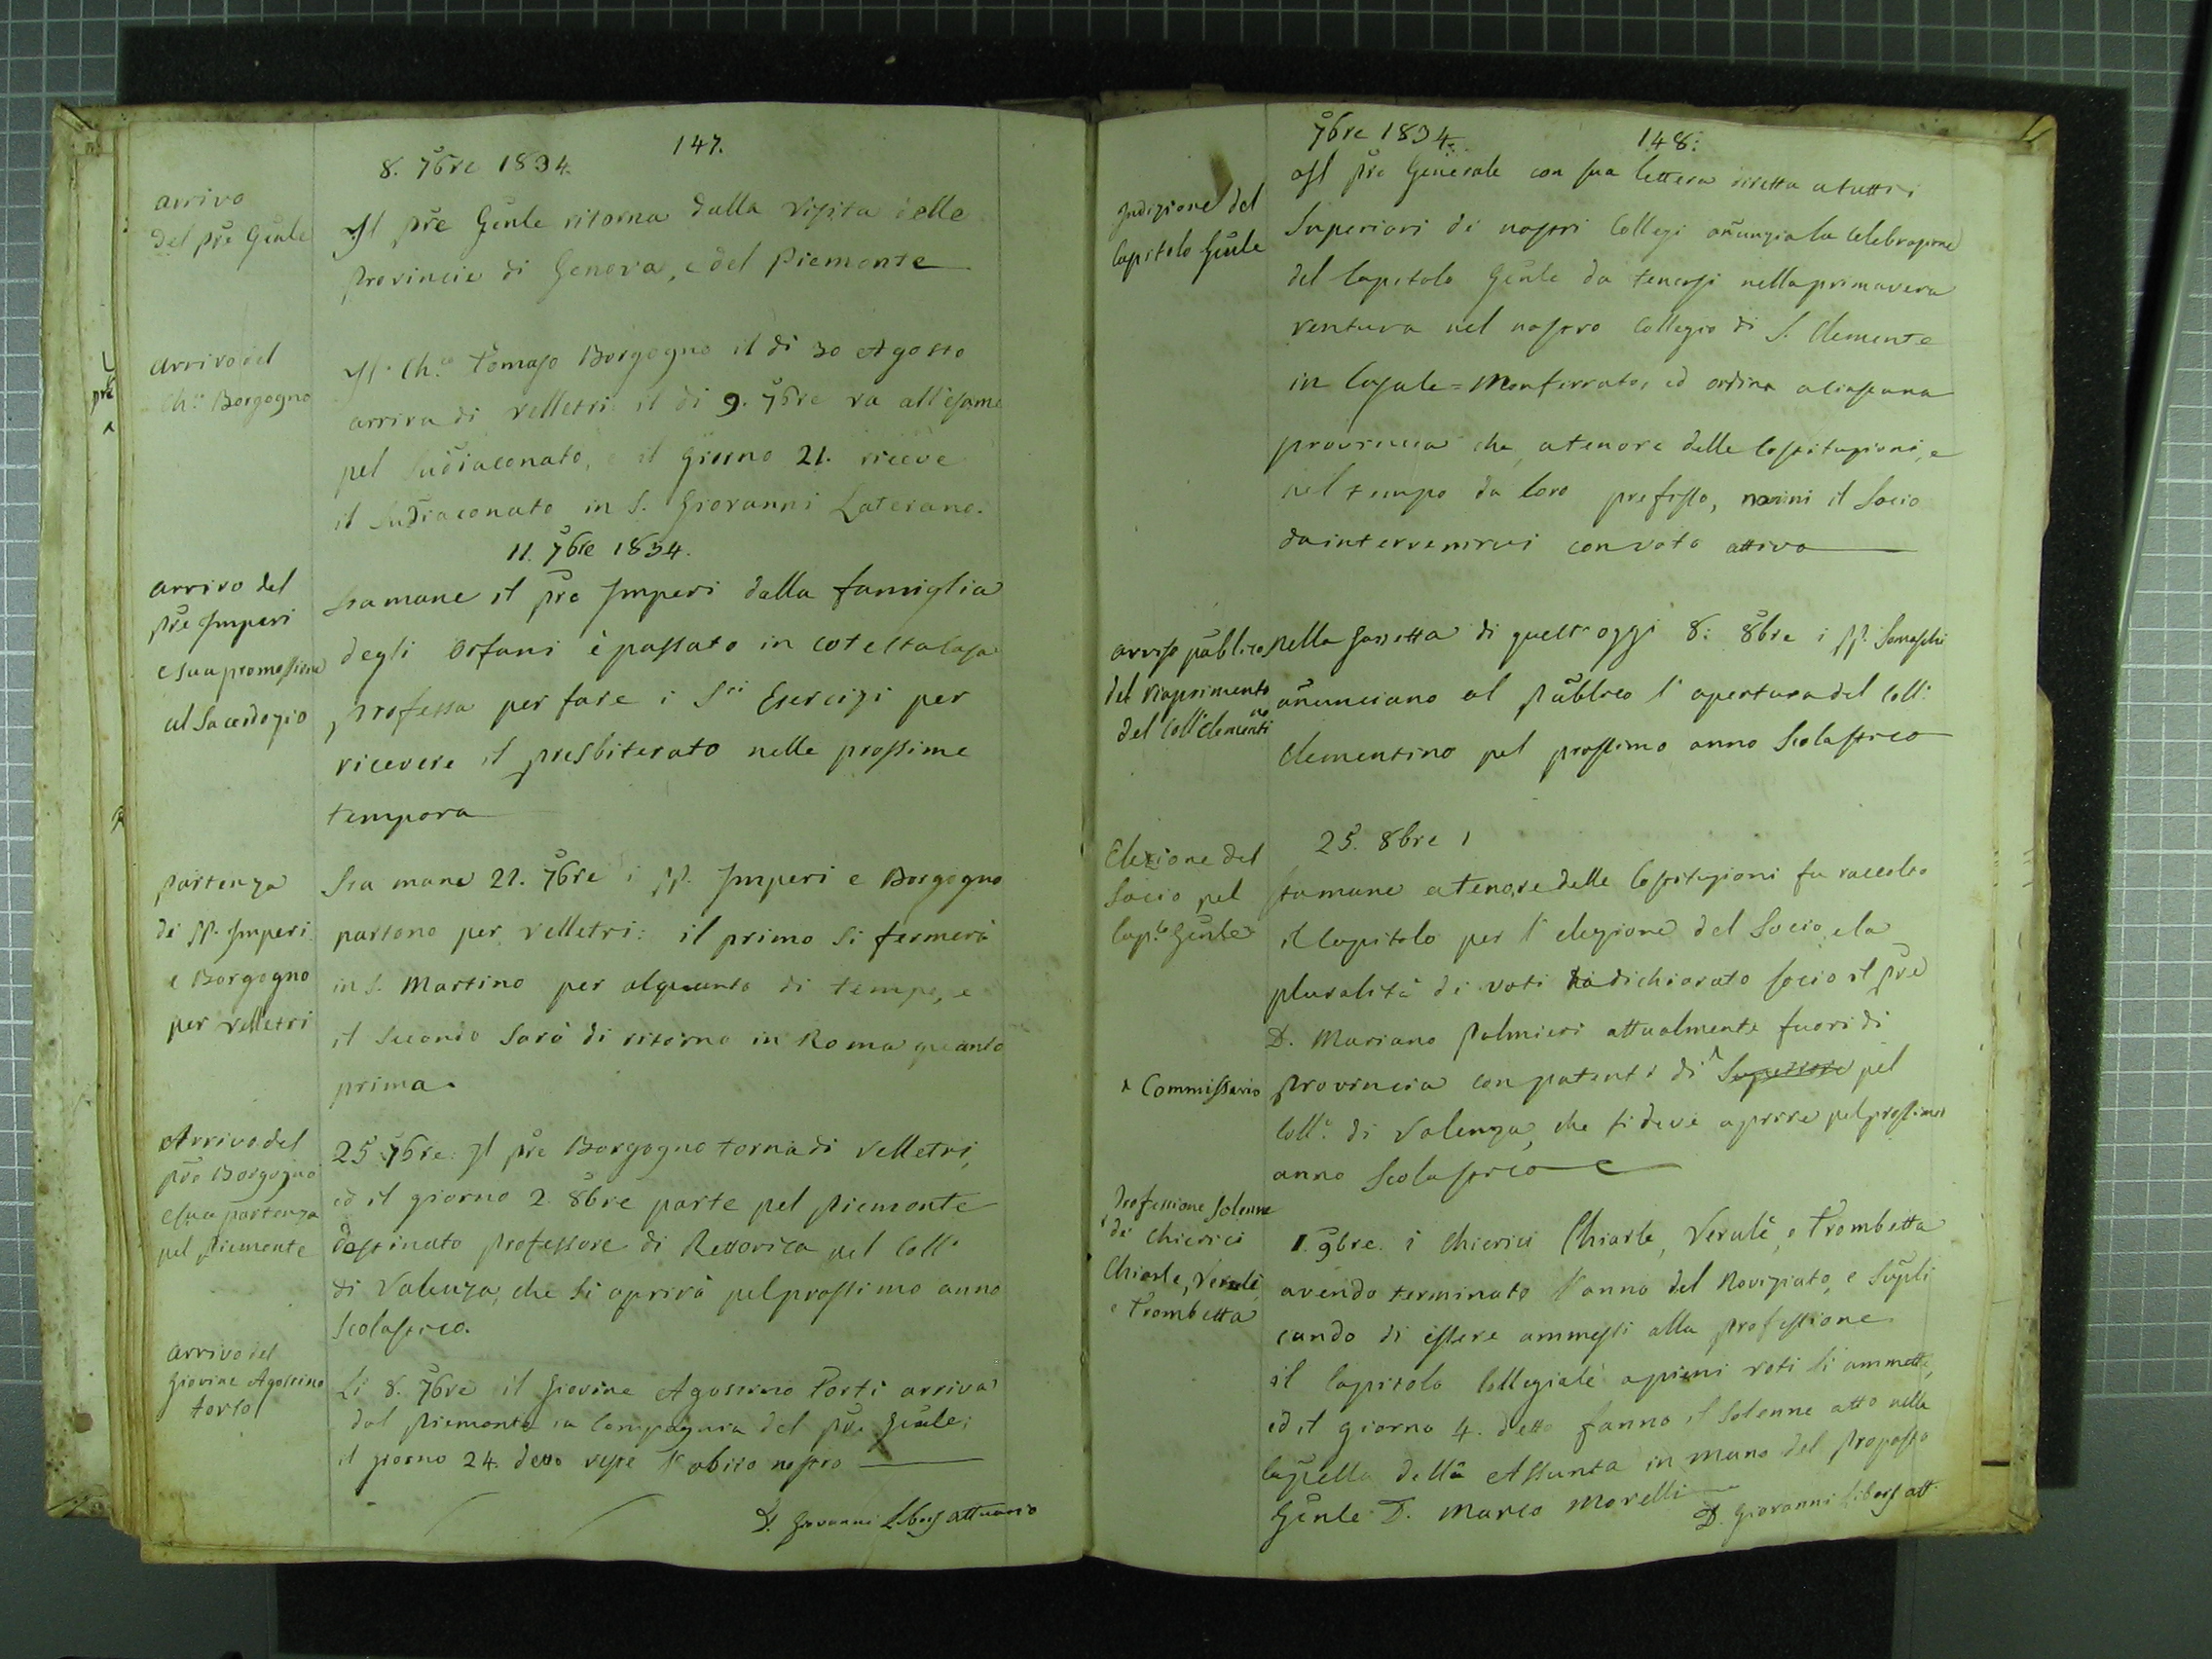 147.
8. 7bre 1834.
arrivo
del pre Gñle
Il pre Gñle ritorna dalla visita delle
Provincie di Genova, e del Piemonte
Arrivo del
Ch.co Borgogno
Il Ch.co Tomaso Borgogno il dì 30 Agosto
arriva di Velletri il dì 9. 7bre va all'esame
pel Sudiaconato, e il giorno 21. riceve
il Sudiaconato in S. Giovanni Laterano.
11. 7bre 1834.
arrivo del
Pre Imperi
e sua promossione
al Sacerdozio
Stamane il pre Imperi dalla famiglia
degli Orfani è passato in cotesta Casa
professa per fare i S.ti Esercizi per
ricevere il presbiterato nelle prossime
tempora
partenza
di PP. Imperi
e Borgogno
per Velletri
Sta mane 21. 7bre i PP. Imperi e Borgogno
partono per Velletri: il primo si fermerà
in S. Martino per alquanto di tempo, e
il secondo sarà di ritorno in Roma quanto
prima.
Arrivo del
pre Borgogno
e sua partenza
pel Piemonte
25 7bre: Il pre Borgogno torna di Velletri,
ed il giorno 2. 8bre parte pel Piemonte
destinato professore di Rettorica nel Coll.
di Valenza, che si aprirà pel prossimo anno
Scolastico.
arrivo del
Giovine Agostino
Torto
Li 8. 7bre il Giovine Agostino Torti arriva
dal Piemonte in Compagnia del pre Gñle;
il giorno 24. detto veste l'abito nostro
D. Giovanni Libois attuario
7bre 1834.
148:
Indizione del
Capitolo Gñle
Il pre Generale con sua lettera diretta a tutti i
Superiori di nostri Collegi anunzia la celebrazione
del Capitolo Gñle da tenersi nella primavera
ventura nel nostro Collegio di S. Clemente
in Casale=Monferrato, ed ordina a ciascuna
provincia che, a tenore delle Costituzioni, e
nel tempo da loro prefisso, nomini il Socio
da intervenirvi con voto attivo
avviso publico
del riaprimento
del Coll. Clementino
Nella Gazzetta di quest'oggi 8: 8bre i PP. Somaschi
anunciano al Publico l'apertura del Coll:
Clementino pel prossimo anno Scolastico
Elezione del
Socio pel
Cap.lo Gñle
25. 8bre
Stamane a tenore delle Costituzioni fu raccolto
il Capitolo per l'elezione del Socio, e la
pluralità di voti ha dichiarato socio il pre
D. Mariano Palmieri attualmente fuori di
^ Commissario
provincia con patenti di ^ Superiore pel
Coll.o di Valenza, che si deve aprire pel prossimo
anno Scolastico
Professione Solenne
di Chierici
Chiarle, Verulè,
e Trombetta
1. 9bre. i Chierici Chiarle, Verulè, e Trombetta
avendo terminato l'anno del Noviziato, e supli
cando di essere ammessi alla professione
il Capitolo Collegiale a pieni voti li ammette,
ed il giorno 4. detto fanno il Solenne atto nella
Capella della Assunta in mano del Proposto
Gñle D. Marco Morelli
D. Giovanni Libois att.